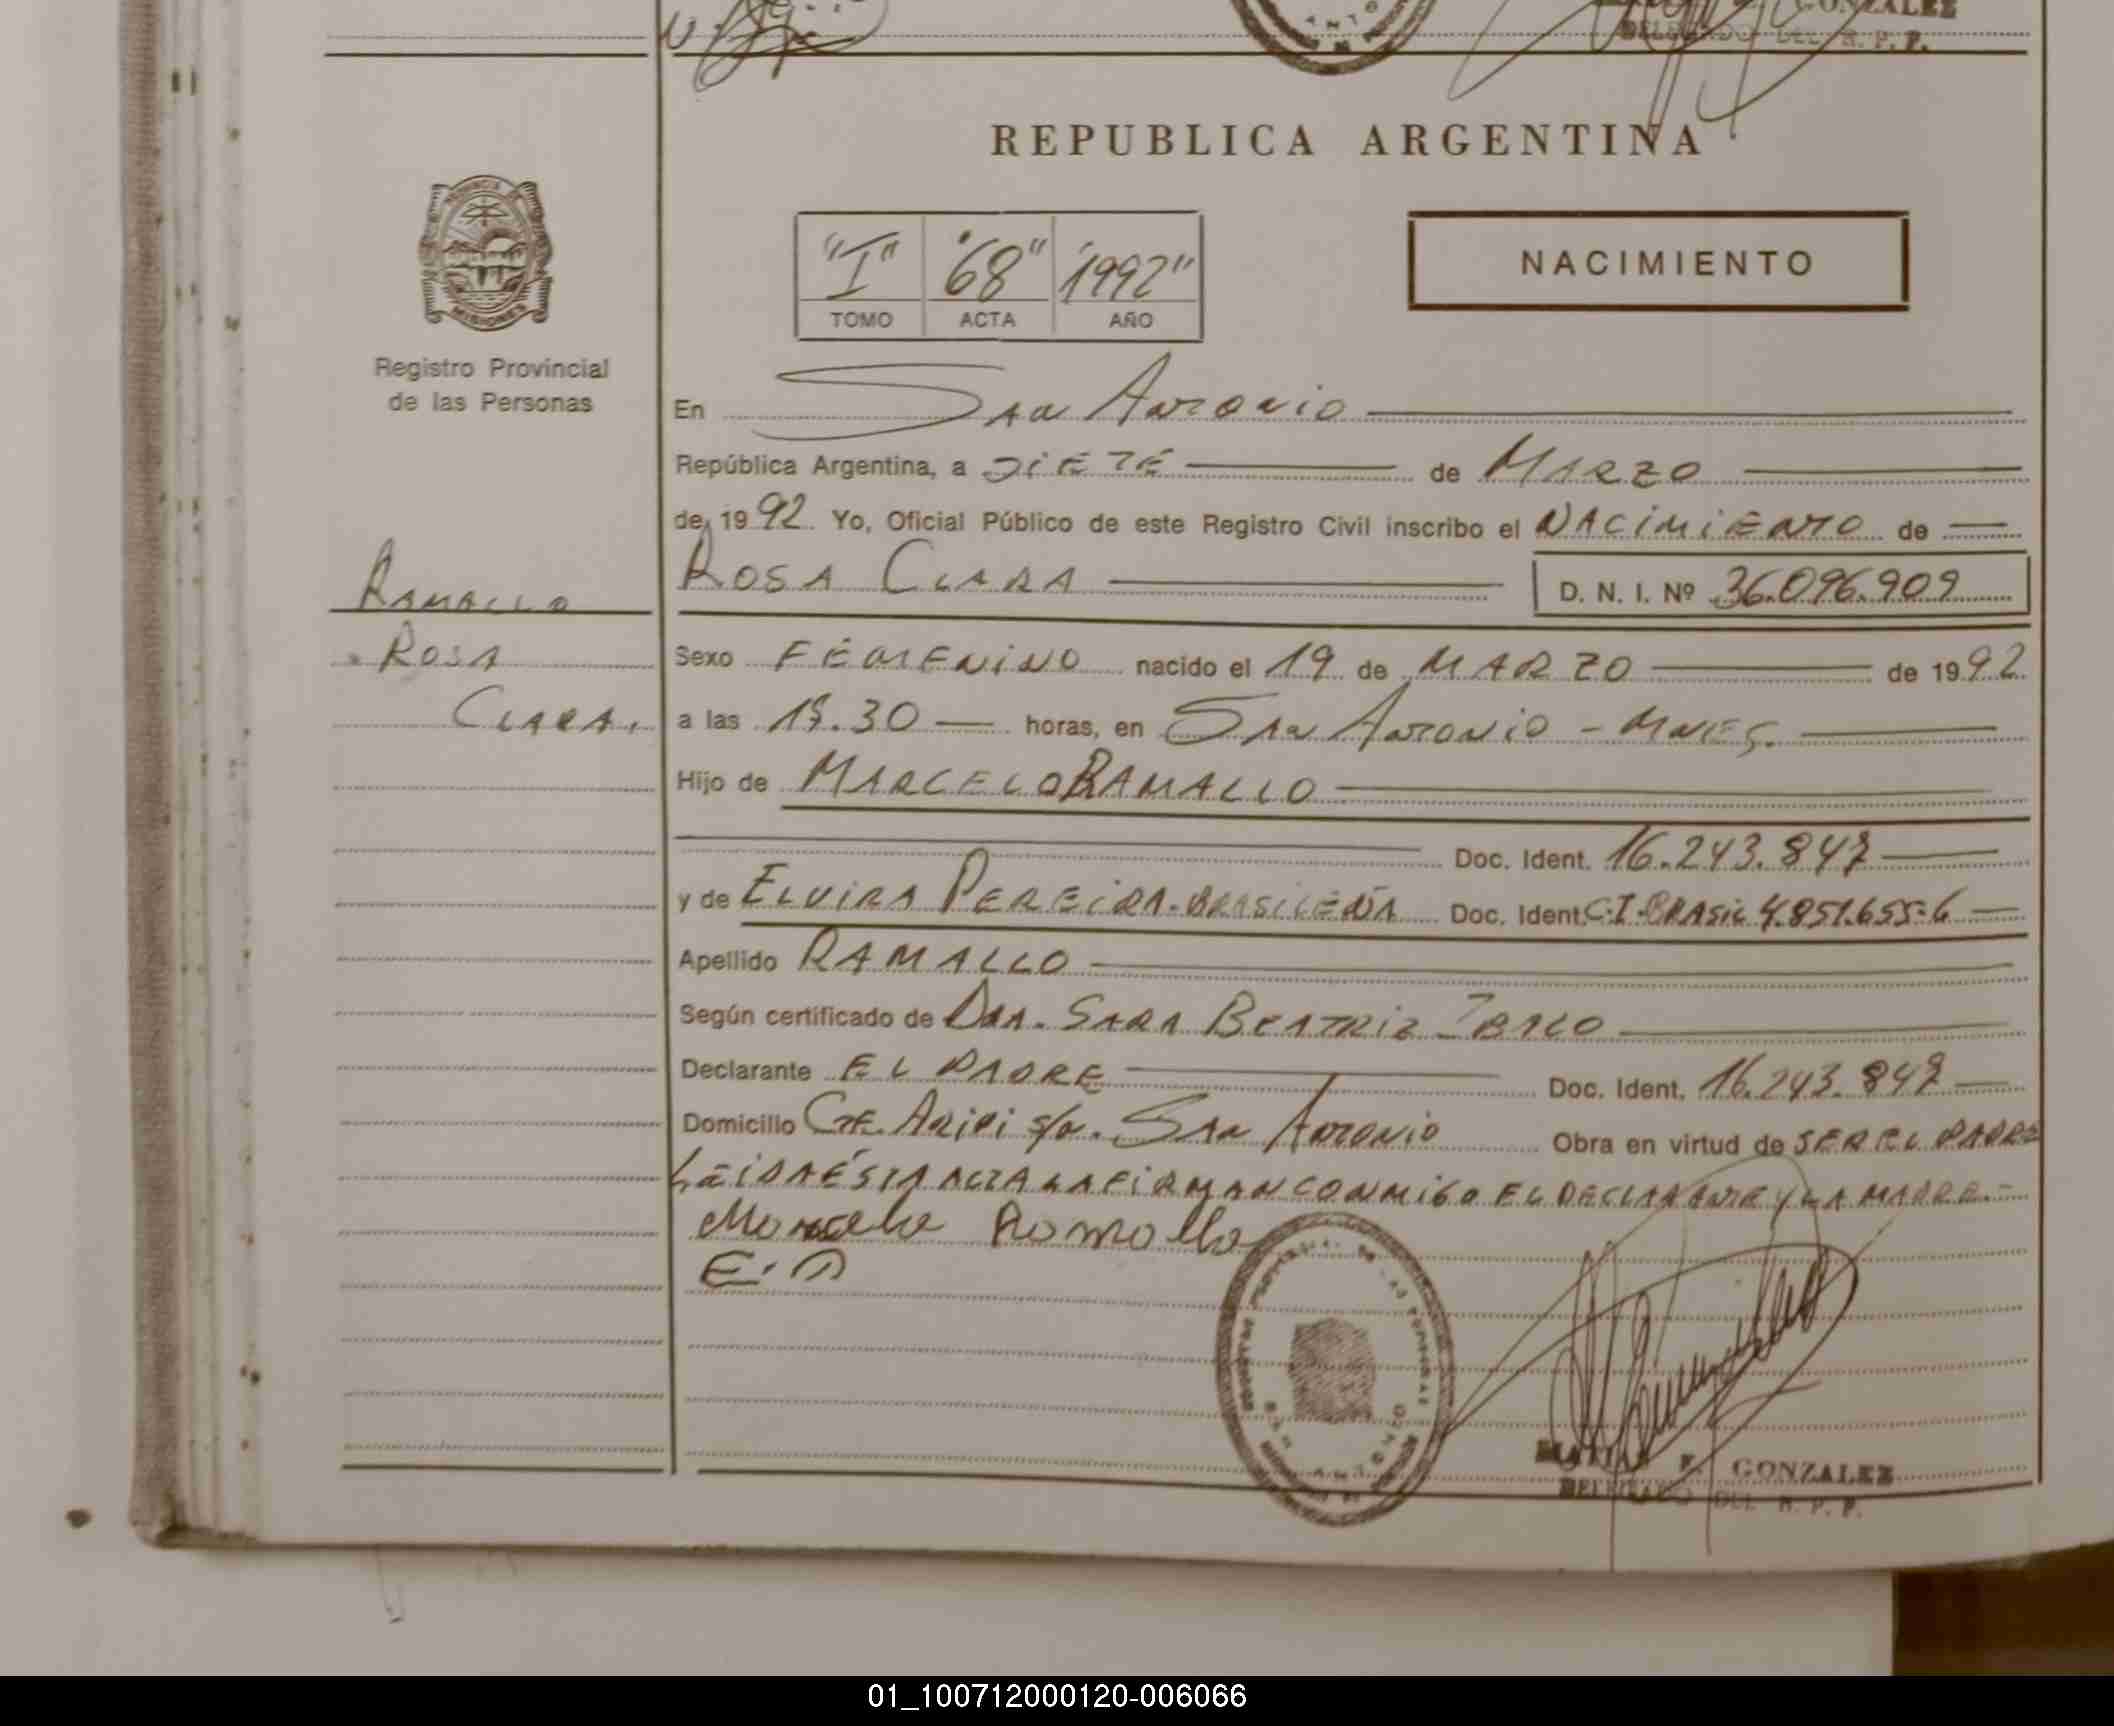 GONZALEZ
DELEGADO DEL R. P. P.
REPUBLICA ARGENTINA
"I" "68" "1992"
TOMO ACTA AÑO
NACIMIENTO
MISIONES
Registro Provincial
de las Personas
En San Antonio
República Argentina, a SIETE de MARZO
de 1992. Yo, Oficial Público de este Registro Civil inscribo el NACIMIENTO de
RAMALLO
ROSA CLARA D. N. I. Nº 36.096.909
ROSA
Sexo FEMENINO nacido el 19 de MARZO de 1992
CLARA.
a las horas, en San Antonio - Mnes.
Hijo de MARCELO RAMALLO
Doc. Ident. 16.243.847
y de ELVIRA PEREIRA. BRASILEÑA Doc. Ident. C.I. BRASIL 4.851.655-6
Apellido RAMALLO
Según certificado de DRA. SARA BEATRIZ
Declarante EL PADRE Doc. Ident. 16.243.847
Domicilio San Antonio Obra en virtud de SER EL PADRE
LEIDA ÉSTA ACTA LA FIRMAN CONMIGO EL DECLARANTE Y LA MADRE.-
Marcelo Ramallo
E. P
GONZALEZ
DELEGADO DEL R. P. P.
01_100712000120-006066